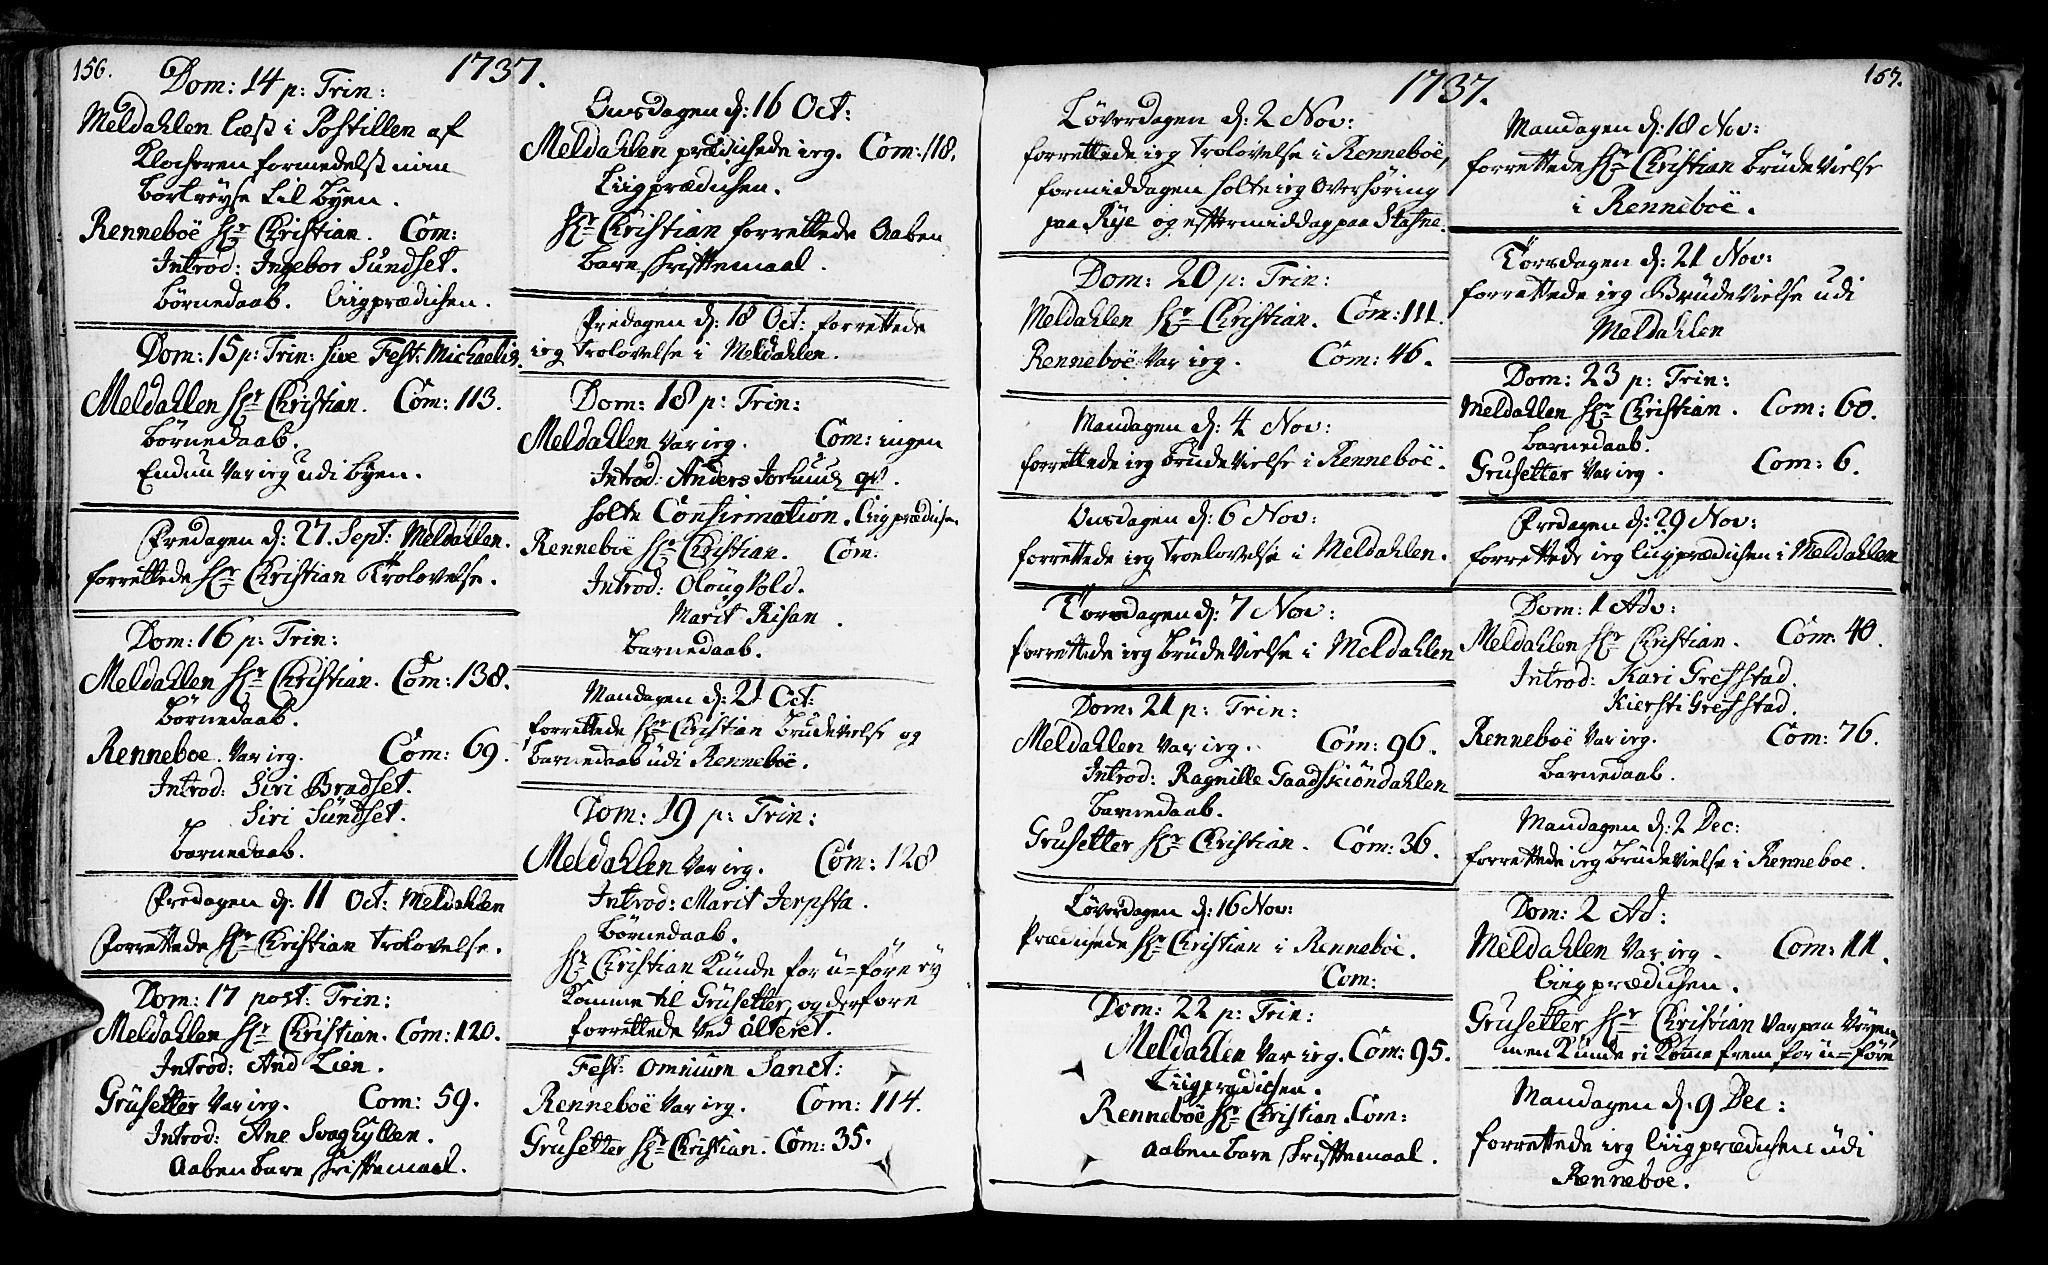 156.
1737.
Dom: 14 p: Trin:
Meldahlen læst i Postillen af
Klocheren formedelst min
bortreyse til Byen.
Renneboë Hr Christian. Com:
Introd: Ingebor Sundset.
Børnedaab. Liigprædichen.
Dom: 15 p: Trin: sive Fest: Michaelis.
Meldahlen Hr Christian. Com: 113.
Børnedaab.
Endnu var ieg udi Byen.
Fredagen d: 27. Sept: Meldahlen.
forrettede Hr Christian Trolovelse.
Dom: 16 p: Trin:
Meldahlen Hr Christian. Com: 138.
Børnedaab.
Renneboe var ieg. Com: 69.
Introd: Siri Bradset.
Siri Sundset.
Barnedaab.
Fredagen d: 11 Oct: Meldahlen
forrettede Hr Christian Trolovelse.
Dom: 17 post: Trin:
Meldahlen Hr Christian. Com: 120.
Introd: And Lien.
Grusetter var ieg. Com: 59.
Introd: Ane Svaghyllen.
Aabenbare skriftemaal.
Onsdagen d: 16 Oct:
Meldahlen prædichede ieg. Com: 118.
Liigprædichen.
Hr Christian forrettede Aaben
bare skriftemaal.
Fredagen d: 18 Oct: forrettede
ieg Trolovelse i Meldahlen.
Dom: 18 p: Trin:
Meldahlen var ieg. Com: ingen
Introd: Anders qv.
holte Confirmation. Liigprædichen
Renneboe Hr Christian. Com:
Introd: Oloug Vold.
Marit Risan.
Barnedaab.
Mandagen d: 21 Oct:
forrettede Hr Christian Brudevielse og
Barnedaab udi Renneboë.
Dom: 19 p: Trin:
Meldahlen var ieg. Com: 128
Introd: Marit Jerpsta.
Børnedaab.
Hr Christian kunde for u=føre ey
komme til Grusetter, og derfore
forrettede ved alteret.
Fest: omnium Sanct:
Renneboë var ieg. Com: 114.
Grusetter Hr Christian. Com: 35.
157.
1737.
Løverdagen d: 2 Nov:
forrettede ieg Trolovelse i Renneboë,
formiddagen holte ieg overhøring
paa Rye og eftermiddag paa Stafne.
Dom: 20 p: Trin:
Meldahlen Hr Christian. Com: 111.
Renneboë var ieg. Com: 46.
Mandagen d: 4 Nov:
forrettede ieg Brudevielse i Renneboë.
Onsdagen d: 6 Nov:
forrettede ieg Troelovelse i Meldahlen.
Torsdagen d: 7 Nov:
forrettede ieg Brudevielse i Meldahlen
Dom: 21 p: Trin:
Meldahlen var ieg. Com: 96.
Introd: Ragnille Gaadskiöndahlen
Barnedaab.
Grusetter Hr Christian. Com: 36.
Løverdagen d: 16 Nov:
Prædichede Hr Christian i Renneboë.
Com:
Dom: 22 p: Trin:
Meldahlen var ieg. Com: 95.
Liigprædichen.
Renneboë Hr Christian. Com:
aabenbare skriftemaal.
Mandagen d: 18 Nov:
forrettede Hr Christian Brudevielse
i Renneboë.
Torsdagen d: 21 Nov:
forrettede ieg Brudevielse udi
Meldahlen
Dom: 23 p: Trin:
Meldahlen Hr Christian. Com: 60.
Barnedaab.
Grusetter var ieg. Com: 6.
Fredagen d: 29 Nov:
forrettede ieg Liigprædichen i Meldahlen
Dom: 1 Adv:
Meldahlen Hr Christian. Com: 40.
Introd: Kari Grefstad.
Kiersti Grefstad.
Renneboë var ieg. Com: 76.
Barnedaab.
Mandagen d: 2 Dec:
forrettede ieg Brudevielse i Renneboe.
Dom: 2 Ad:
Meldahlen var ieg. Com: 11.
Liigprædichen.
Grusetter Hr Christian var paa veyen
men kunde ei komme frem for u=føre
Mandagen d: 9 Dec:
forrettede ieg Liigprædichen udi
Renneboe.